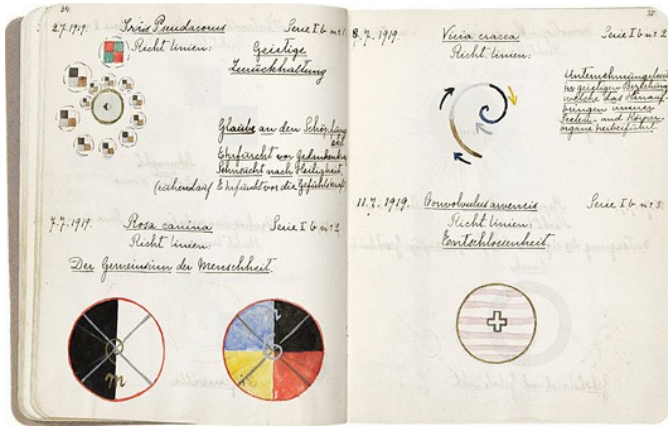 34.
2.7.1919. Iris Pseudacorus Serie I b nr 1.
Richt linien:
Geistige
Zurückhaltung
Glaube an den Schöpfung
Ehrfurcht vor Gedanken
Sehnsucht nach Heiligkeit.
Ehrfurcht vor die Gefühlskraft
7.7.1919. Rosa canina Serie I b nr 2
Richt linien:
Der Gemeinsinn der Menschheit.
m
8.7.1919. Vicia cracca Serie I b nr 2
Richt. linien:
Unternehmungslust
in geistigen Beziehung
welche das Hinauf-
bringen unserer
Seelen- und Körper-
organe herbeiführt.
11.7.1919. Convolvulus arvensis Serie I b nr 3.
Richt linien:
Entschlossenheit